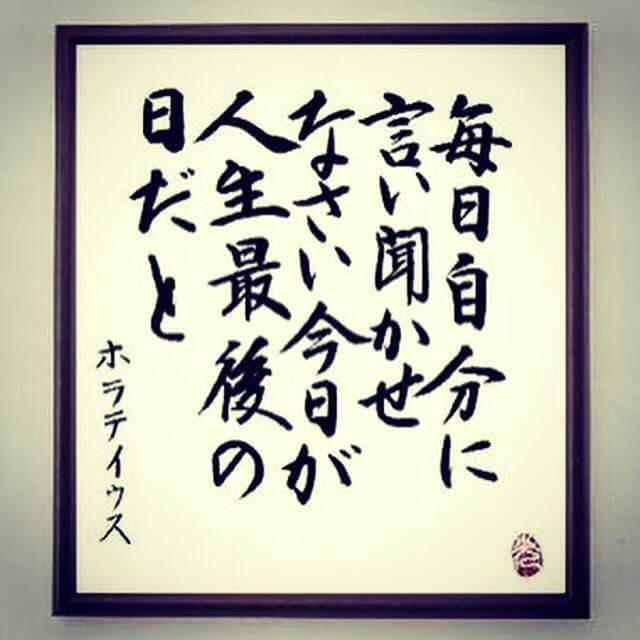 毎日自分に
言い聞かせ
なさい今日が
人生最後の
日だと
ホラティウス